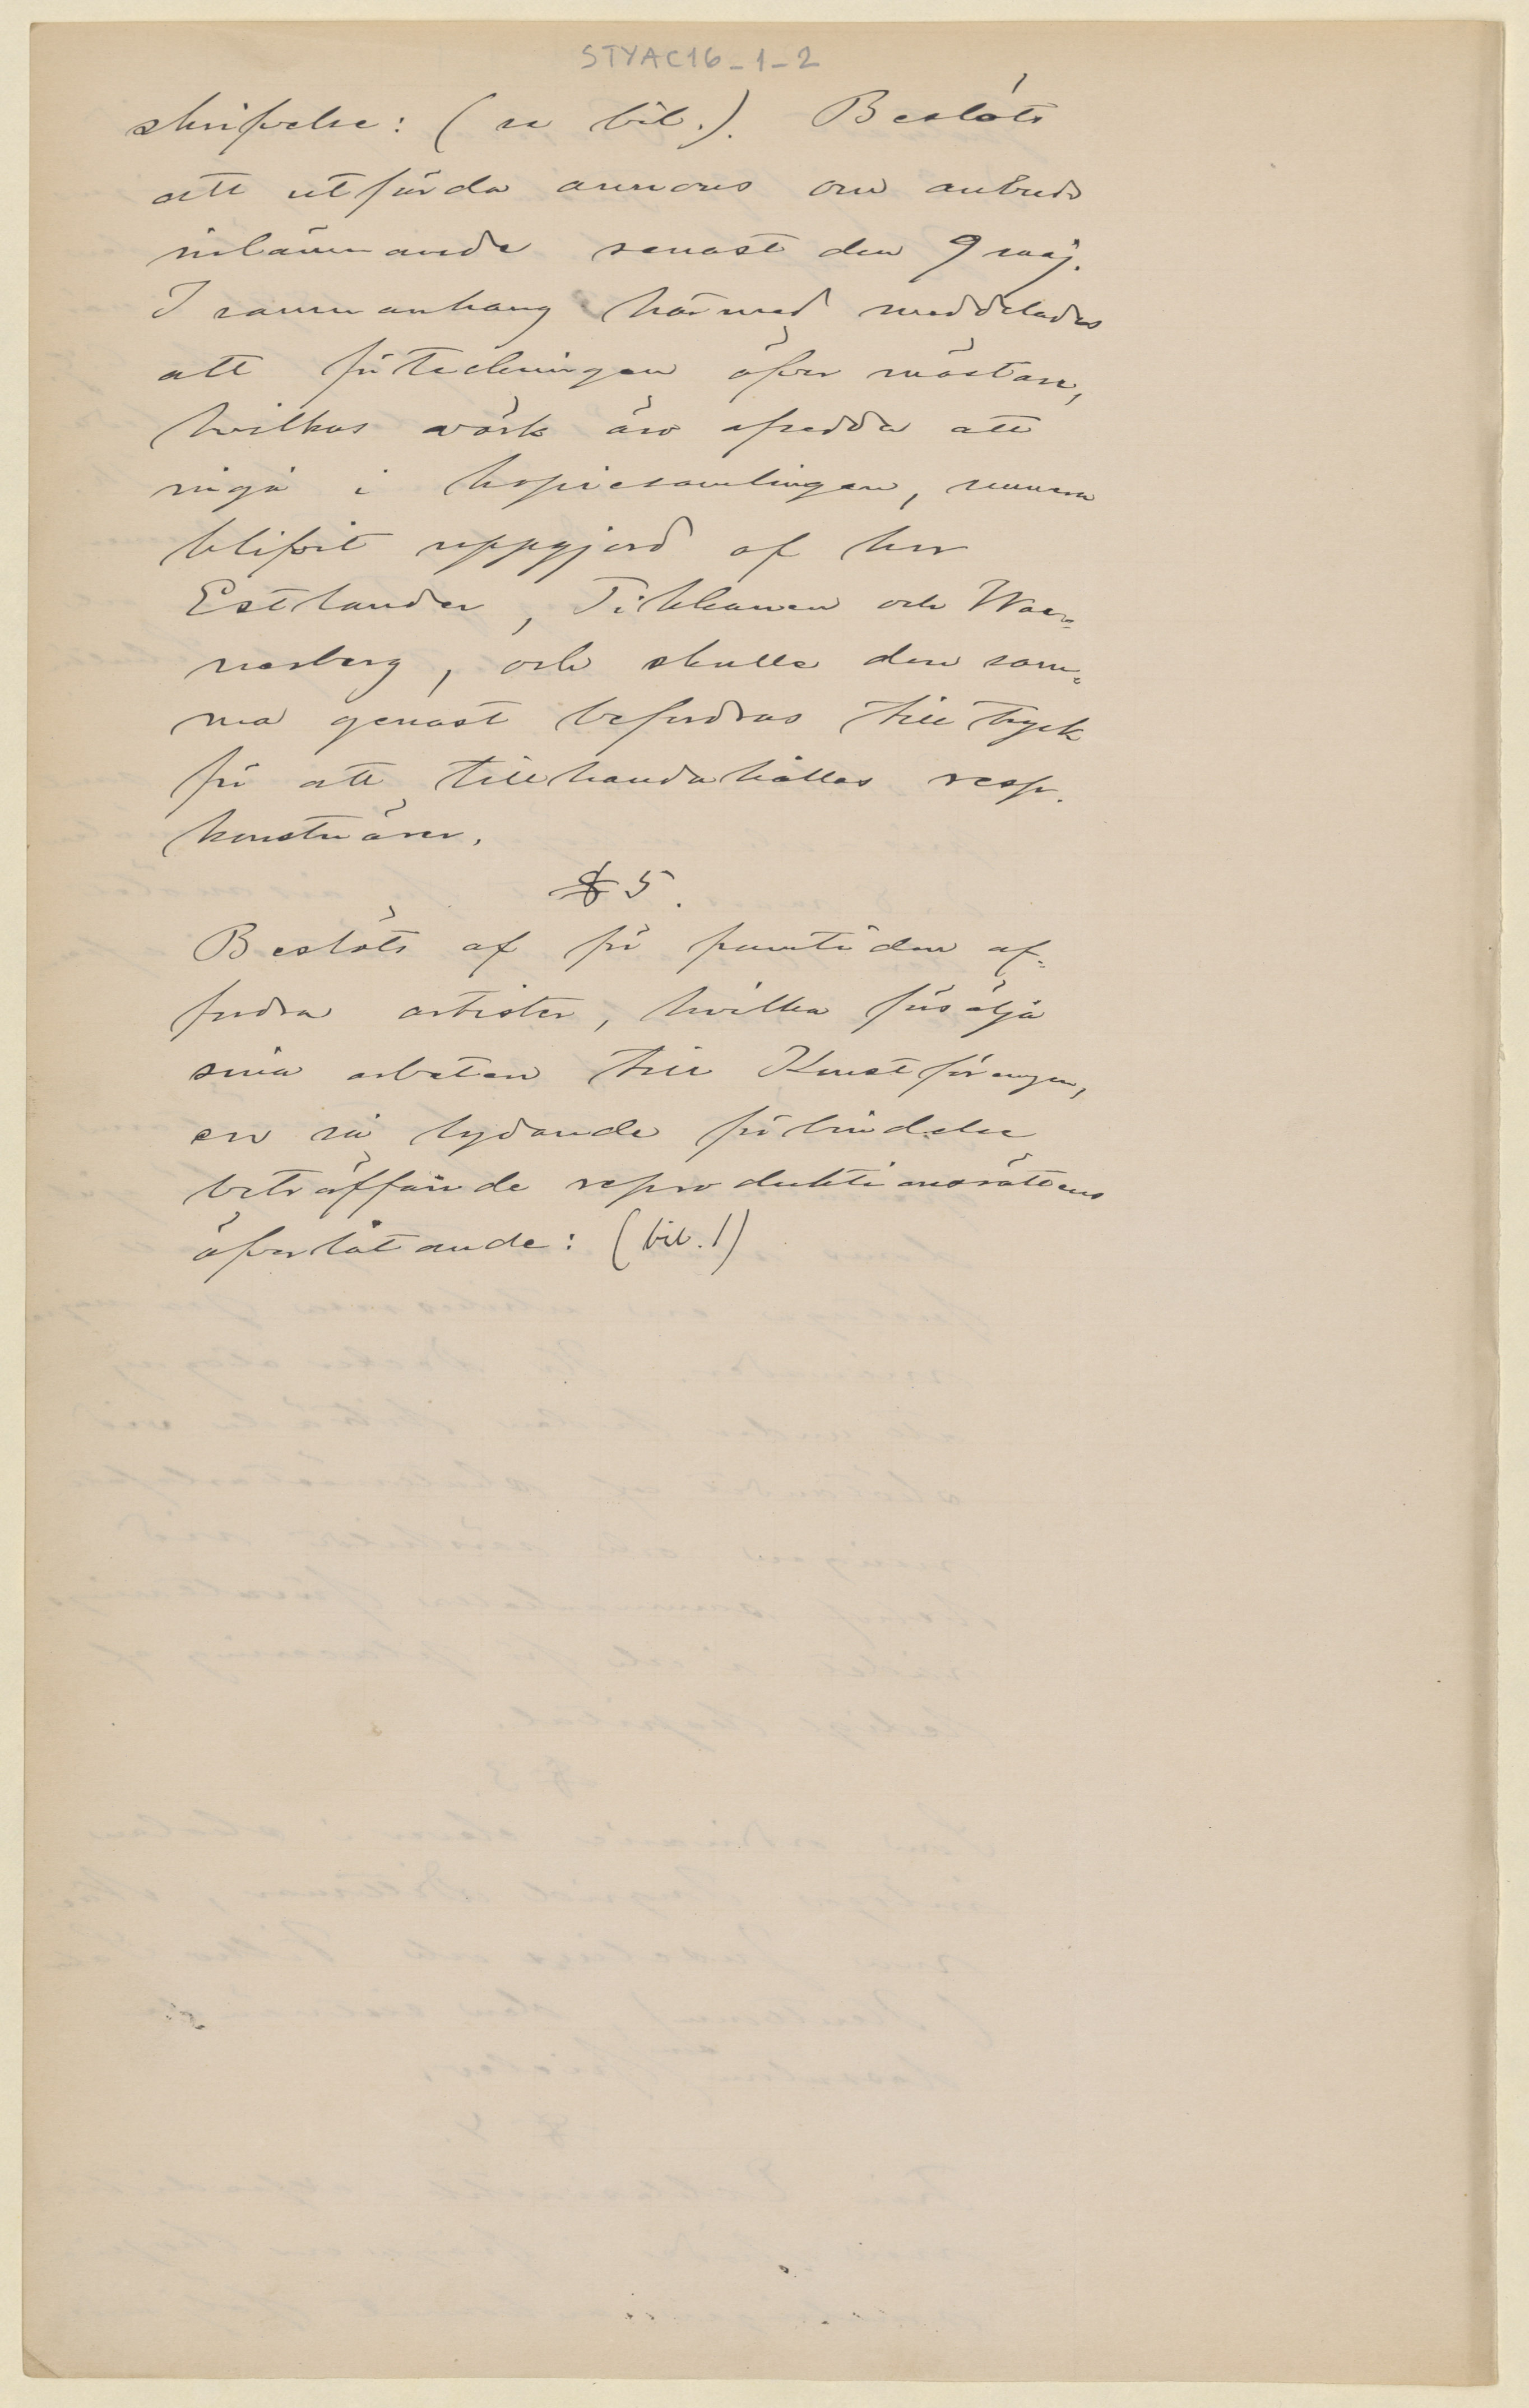 STYAC16-1-2
skrifvelse: (se bil.). Beslöts
att utfärda annons om anbuds
inlämnande senast den 9 maj.
I sammanhang härmed meddelades
att förteckningen öfver mästare,
hvilkas värk äro afsedda att
ingå i kopiesamlingen, numera
blifvit uppgjord af hrr
Estlander, Tikkanen och Wae-
nerberg, och skulle den sam-
ma genast befordras till tryck
för att tillhandahållas resp.
konstnärer.
§ 5.
Beslöts af för framtiden af-
fordra artister, hvilka försälja
sina arbeten till Konstföreningen,
en så lydande förbindelse
beträffande reproduktionsrättens
öfverlåtande: (bil. 1)